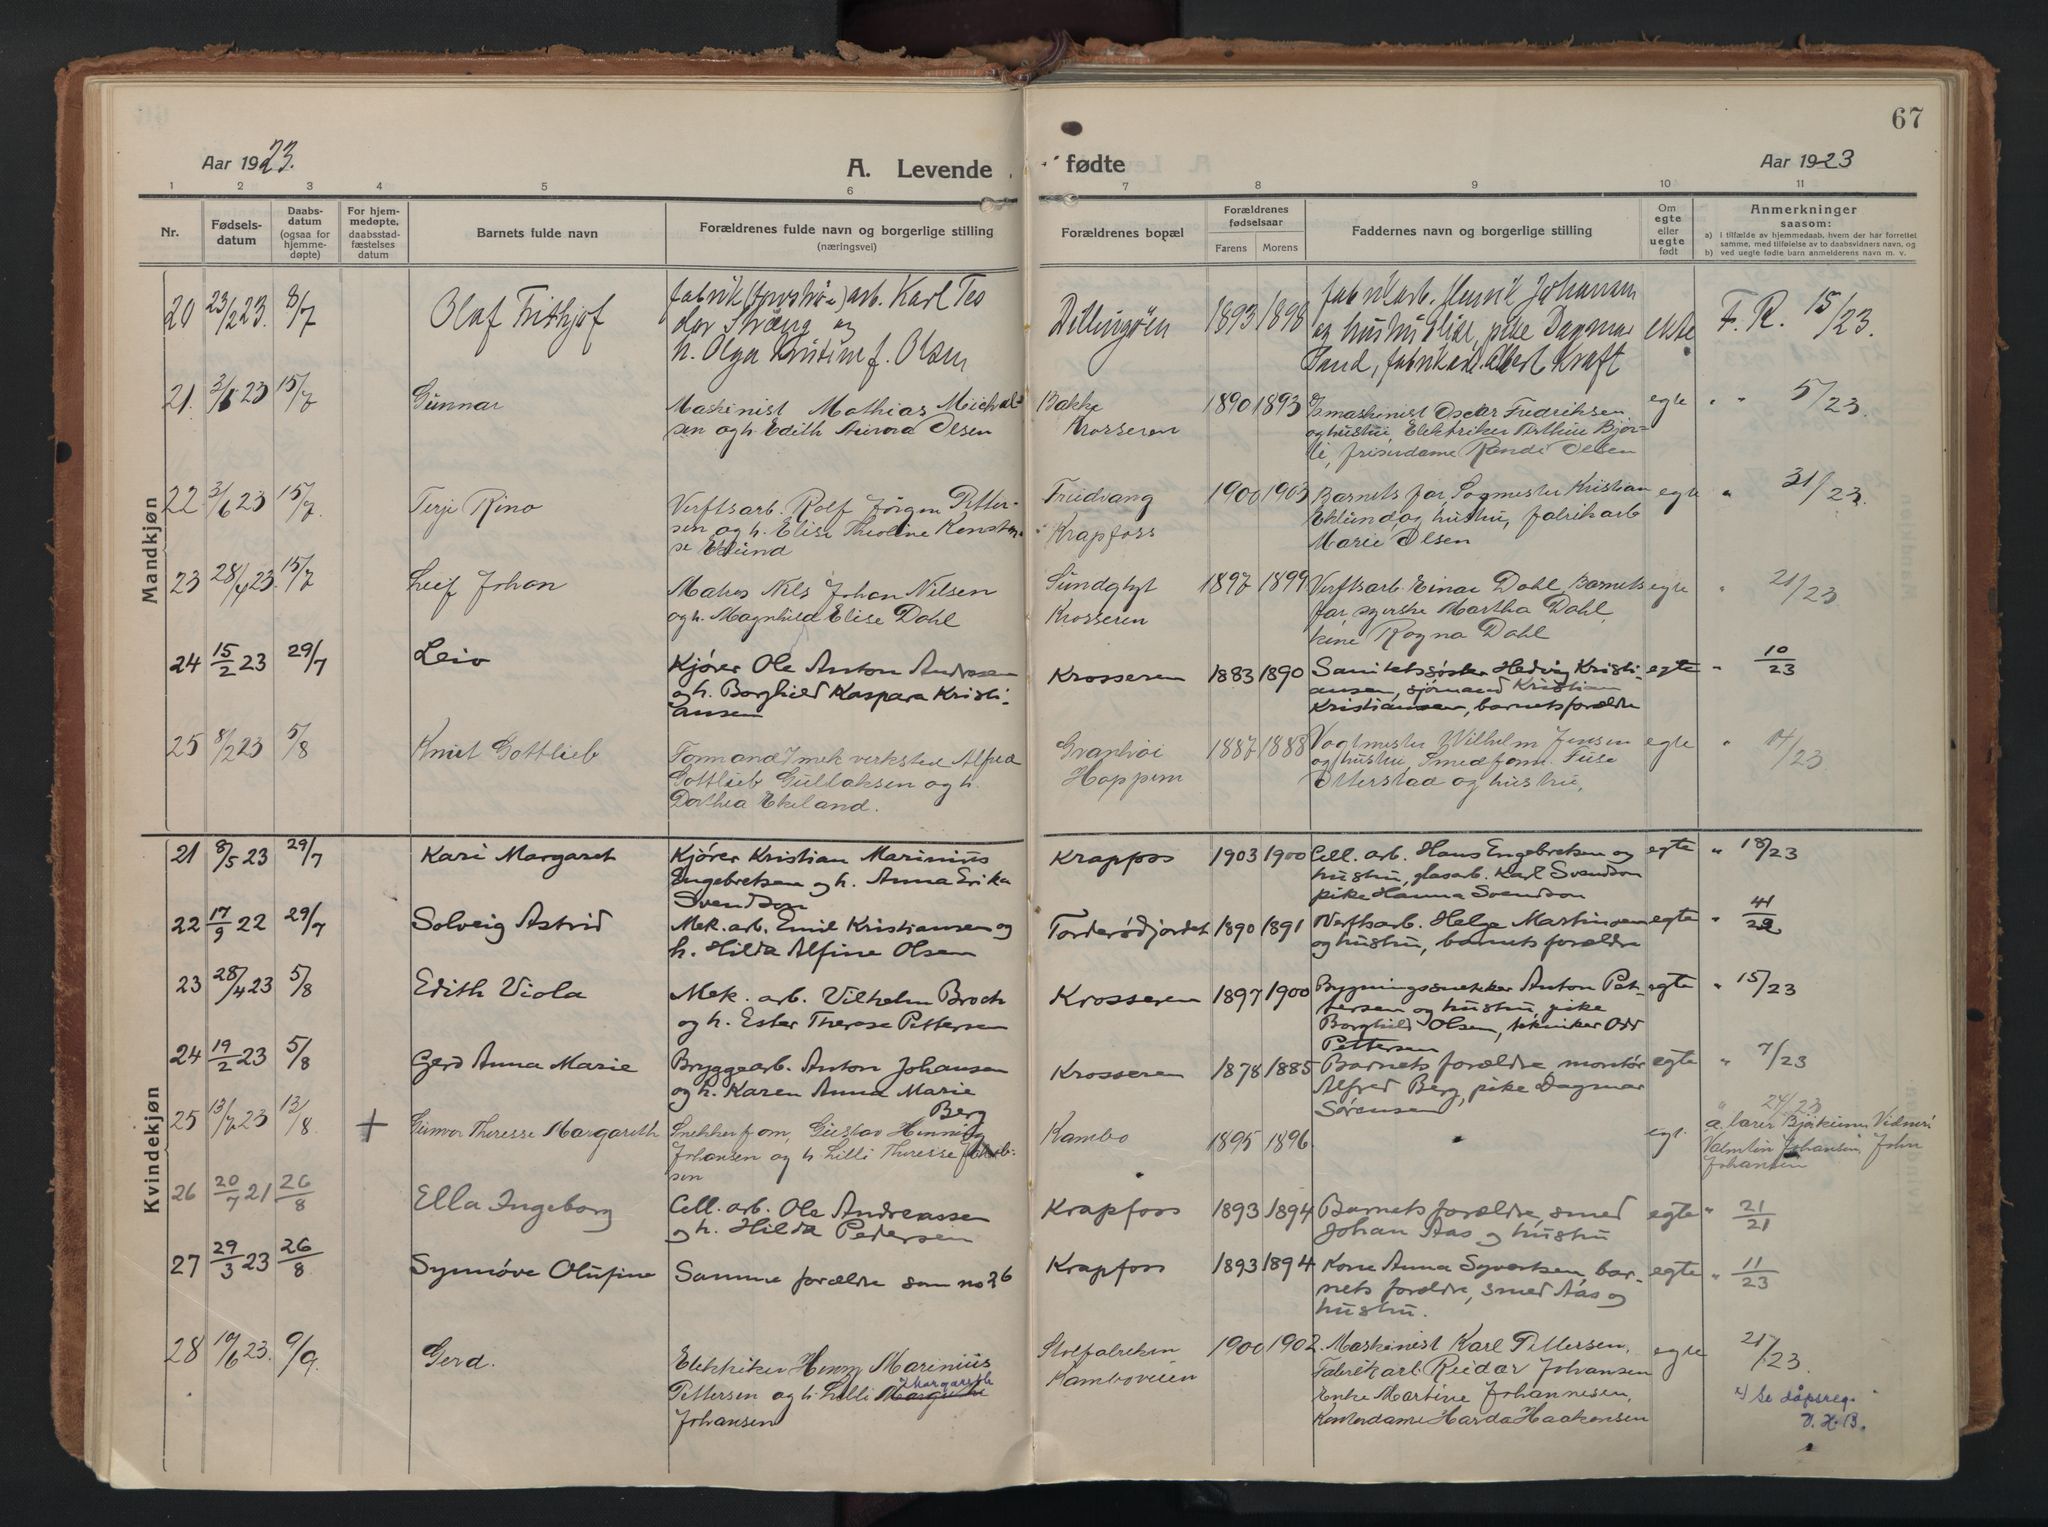 67
Aar 1923.
A. Levende fødte
Aar 1923
1 2 3 4 5 6 7 8 9 10 11
Nr.
Fødsels-
datum
Daabs-
datum
(ogsaa for
hjemme-
døpte)
For hjem-
medøpte,
daabsstad-
fæstelses
datum
Barnets fulde navn
Forældrenes fulde navn og borgerlige stilling
(næringsvei)
Forældrenes bopæl
Forældrenes
fødselsaar
Farens Morens
Faddernes navn og borgerlige stilling
Om
egte
eller
uegte
født
Anmerkninger
saasom:
a) I tilfælde av hjemmedaab, hvem der har forrettet
samme, med tilføielse av to daabsvidners navn, og
b) ved uegte fødte barn anmelderens navn m. v.
Mandkjøn
20 23/2 23. 8/7 Olaf Frithjof
fabrik arb. Karl Teo
dor Stræng og
h. Olga Kristine f. Olsen
Dillingøen 1893 1898
fabrikarb. Henrik Johansen
og hustru, pike Dagmar
Sand, Kraft
ekte F. R. 15/23.
21. 15/7 Gunnar
Maskinist Mathias Michal-
sen og h. Edith Aurora Olsen
Bakke
Krosseren
1890 1893
Ismaskinist Oscar Fredriksen
og hustru, Elektriker Arthur Bjør-
li, frisørdame Randi Olsen
egte " " 5/23.
22. 3/6 23 15/7. Terje Rino
Verftsarb. Rolf Jørgen Petter-
sen og h. Elise Theoline Konstan-
se Eklund
Fredvang
Krapfoss
1900 1903
Barnets far, Sagmester Kristian
Eklund og hustru, fabrikarb
Marie Olsen
egte " 31/23.
23 28/4 23. 15/7 Leif Johan
Matros Nils Johan Nilsen
og h. Magnhild Elise Dahl
Sundghyt
Krosseren
1897 1899
Verftsarb. Einar Dahl, Barnets
far, syerske Martha Dahl,
Ragna Dahl
egte " 21/23
24 15/2 23 29/7 Leiv
Kjører Ole Anton Andresen
og h. Borghild Kaspara Kristi-
ansen
Krosseren 1883 1890
Sanitetssøster Hedvig Kristi-
ansen, sjømand Kristian
Kristiansen, barnets forældre
egte " 10/23
25 8/2 23 5/8 Knut Gottlieb
Formand i mek verksted Alfred
Gottlieb Gullaksen og h.
Dorthea Ekeland.
Granhøi
Hoppern
1887 1888
Vagtmester Wilhelm Jensen
og hustru, Smedform.
Otterstad og hustru,
egte " 14/23
Kvindekjøn
21 8/5 23 29/7 Kari Margaret
Kjører Kristian Marinius
Engebretsen og h. Anna Erika
Svendson
Krapfoss 1903 1900
Cell. arb. Hans Engebretsen og
hustru, glasarb. Karl Svendson
pike Hanna Svendson
egte " 18/23
22 17/9 22 29/7 Solveig Astrid
Mek. arb. Emil Kristiansen og
h. Hilda Alfine Olsen
Torderødjordet 1890 1891
Verftsarb. Helge Martinsen
og hustru, barnets forældre
egte " 41/22
23 28/4 23 5/8 Edith Viola
Mek. arb. Vilhelm Broch
og h. Ester Therese Pettersen
Krosseren 1897 1900
Bygningssnekker Anton Pet-
tersen og hustru, pike
Borghild Olsen, tekniker Odd
Pettersen
egte " 15/23
24 19/2 23 5/8 Gerd Anna Marie
Bryggearb. Anton Johansen
og h. Karen Anna Marie
Berg
Krosseren 1878 1885
Barnets forældre, montør
Alfred Berg, pike Dagmar
Sørensen
egte " 7/23
25 13/7 23 12/8. + Gunvor Theresse Margareth
Snekkerform, Gustav Henning
Johansen og h. Lilli Theresse Jakob-
sen
Kambo 1895 1896
egt.
" 24/23
a. lærer Vidner:
Valentin Johansen, John
Johansen
26 20/7 21 26/8 Ella Ingeborg
Cell. arb. Ole Andreassen
og h. Hilda Pedersen
Krapfoss 1893 1894
Barnets forældre, smed
Johan Aas og hustru
egte " 21/21
27 29/3 23 26/8 Synnøve Olufine
Samme forældre som no 26
Krapfoss 1893 1894
Kone Anna Syvertsen, bar-
nets forældre, smed Aas og
hustru.
egte " 11/23
28 19/6 23. 9/9. Gerd.
Elektriker Henry Marinius
Pettersen og h. Lilli Margarethe
Johansen
Stolfabriken
Kamboveien
1900 1902.
Maskinist Karl Pettersen,
Fabrikarb. Reidar Johansen
Enke Martine Johannesen,
Kontordame Harda Haakensen
egte 25/23.
x) Se dåpsreg.
V. H. B.